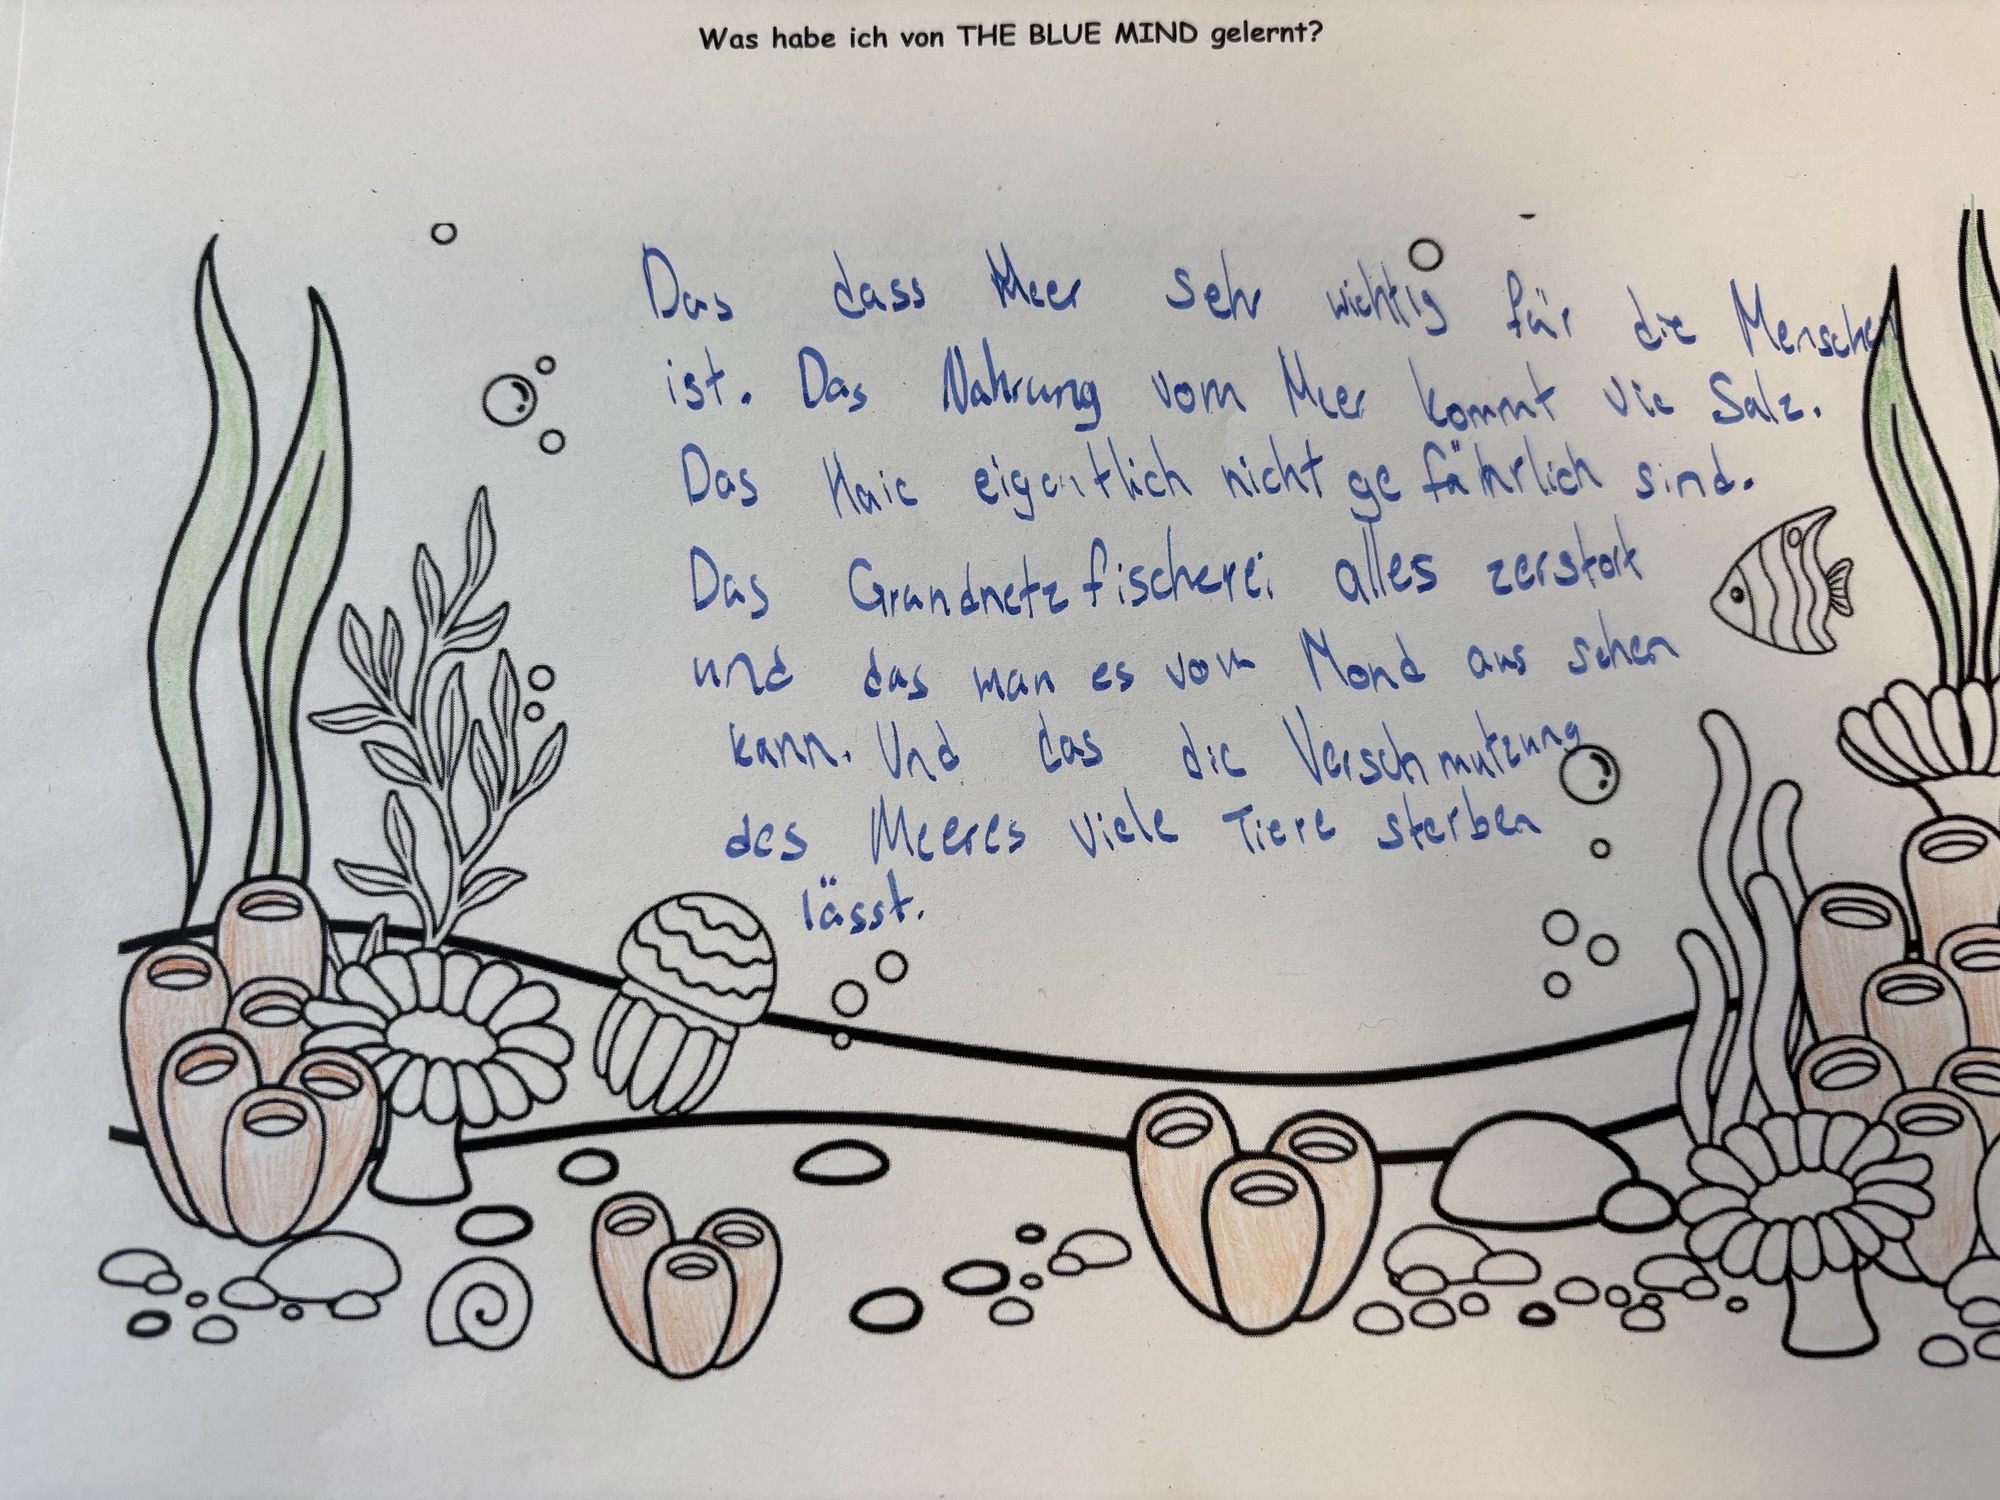 Was habe ich von THE BLUE MIND gelernt?
Das dass Meer sehr wichtig für die Menschen
ist. Das Nahrung vom Meer kommt vie Salz.
Das Haie eigentlich nicht gefährlich sind.
Das Grundnetzfischerei alles zerstört
und das man es vom Mond aus sehen
kann. Und das die Verschmutzung
des Meeres viele Tiere sterben
lässt.